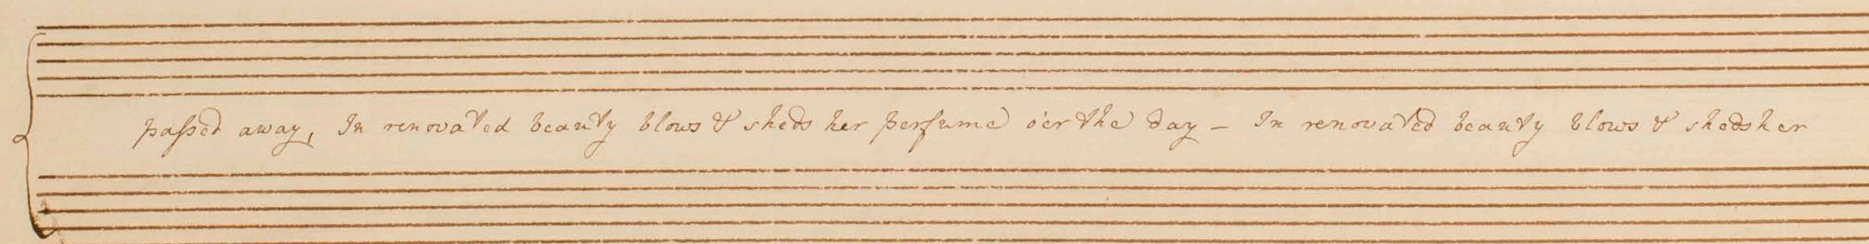 paſsed away, In renovated beauty blows & sheds her perfume o'er the day – In renovated beauty blows & sheds her